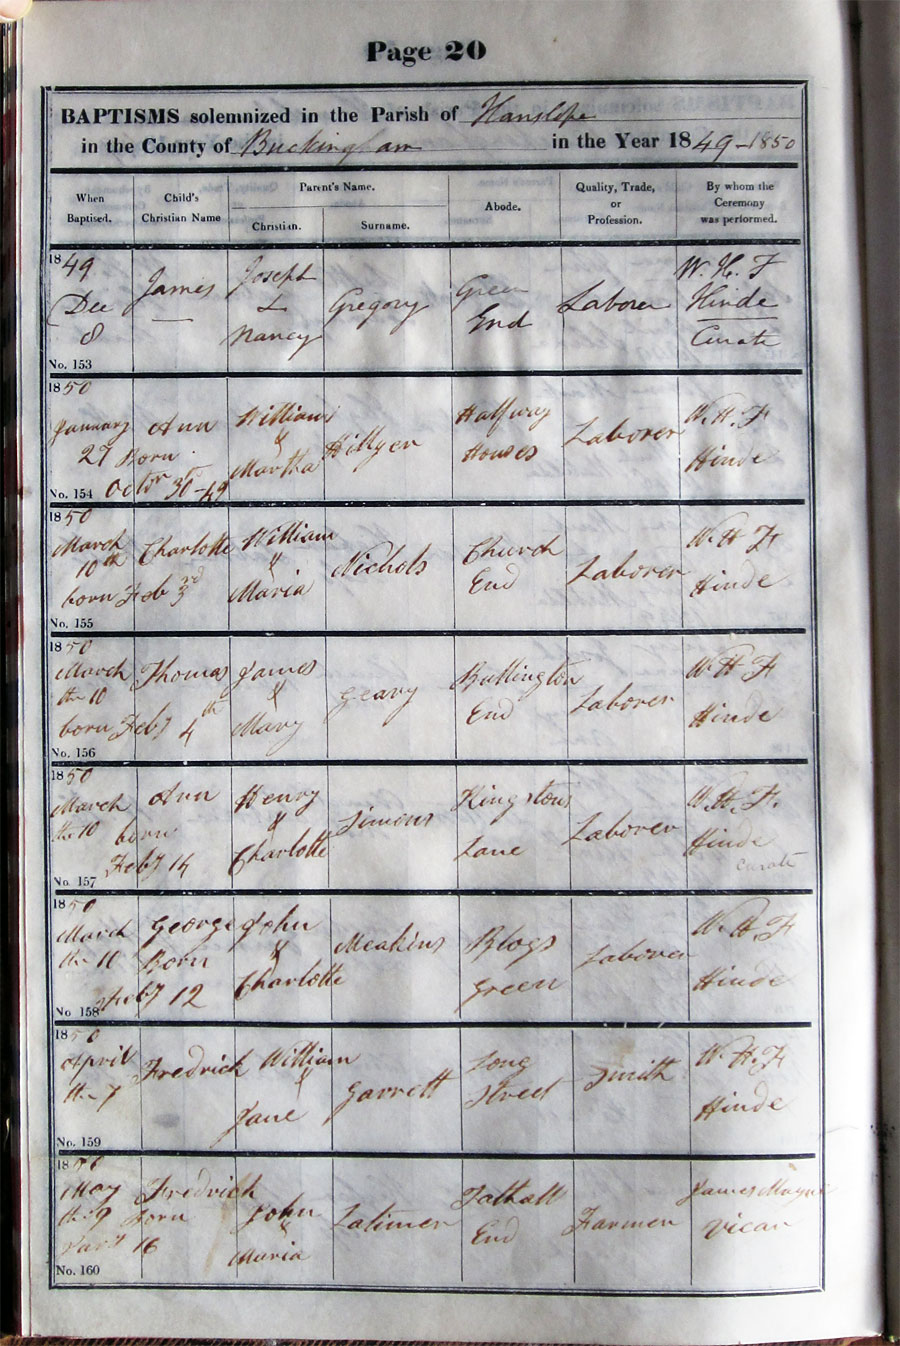 Page 20
BAPTISMS solemnized in the Parish of Hanslope
in the County of Buckingham in the Year 1849-1850
When Baptised.
Child's Christian Name
Parent's Name.
Christian.
Surname.
Abode.
Quality, Trade, or Profession.
By whom the Ceremony was performed.
1849
Dec
8
No. 153
James
Joseph
&
Nancy
Gregory
Green
End
Laborer
W. H. F
Hinde
Curate
1850
January
27
No. 154
Ann
Born
Octbr 30th -49
William
&
Martha
Hillyer
Halfway
Houses
Laborer
W. H. F
Hinde
1850
March
10th
born Feb 3rd
No. 155
Charlotte
William
&
Maria
Nichols
Church
End
Laborer
W H F
Hinde
1850
March
the 10
born Feby 4th
No. 156
Thomas
James
&
Mary
Geary
Bullington
End
Laborer
W H F
Hinde
1850
March
the 10
No. 157
Ann
born
Feby 14
Henry
&
Charlotte
Simons
Kingstons
Lane
Laborer
W. H. F.
Hinde
Curate
1850
March
the 10
No. 158
George
Born
Feby 12
John
&
Charlotte
Meakins
Blogs
Green
Laborer
W H F
Hinde
1850
April
the 7
No. 159
Fredrich
William
&
Jane
Garrett
Long
Street
Smith
W H F
Hinde
1850
May
the 9
No. 160
Fredrich
born
16
John
&
Maria
Latimer
Tathall
End
Farmer
James
Vicar